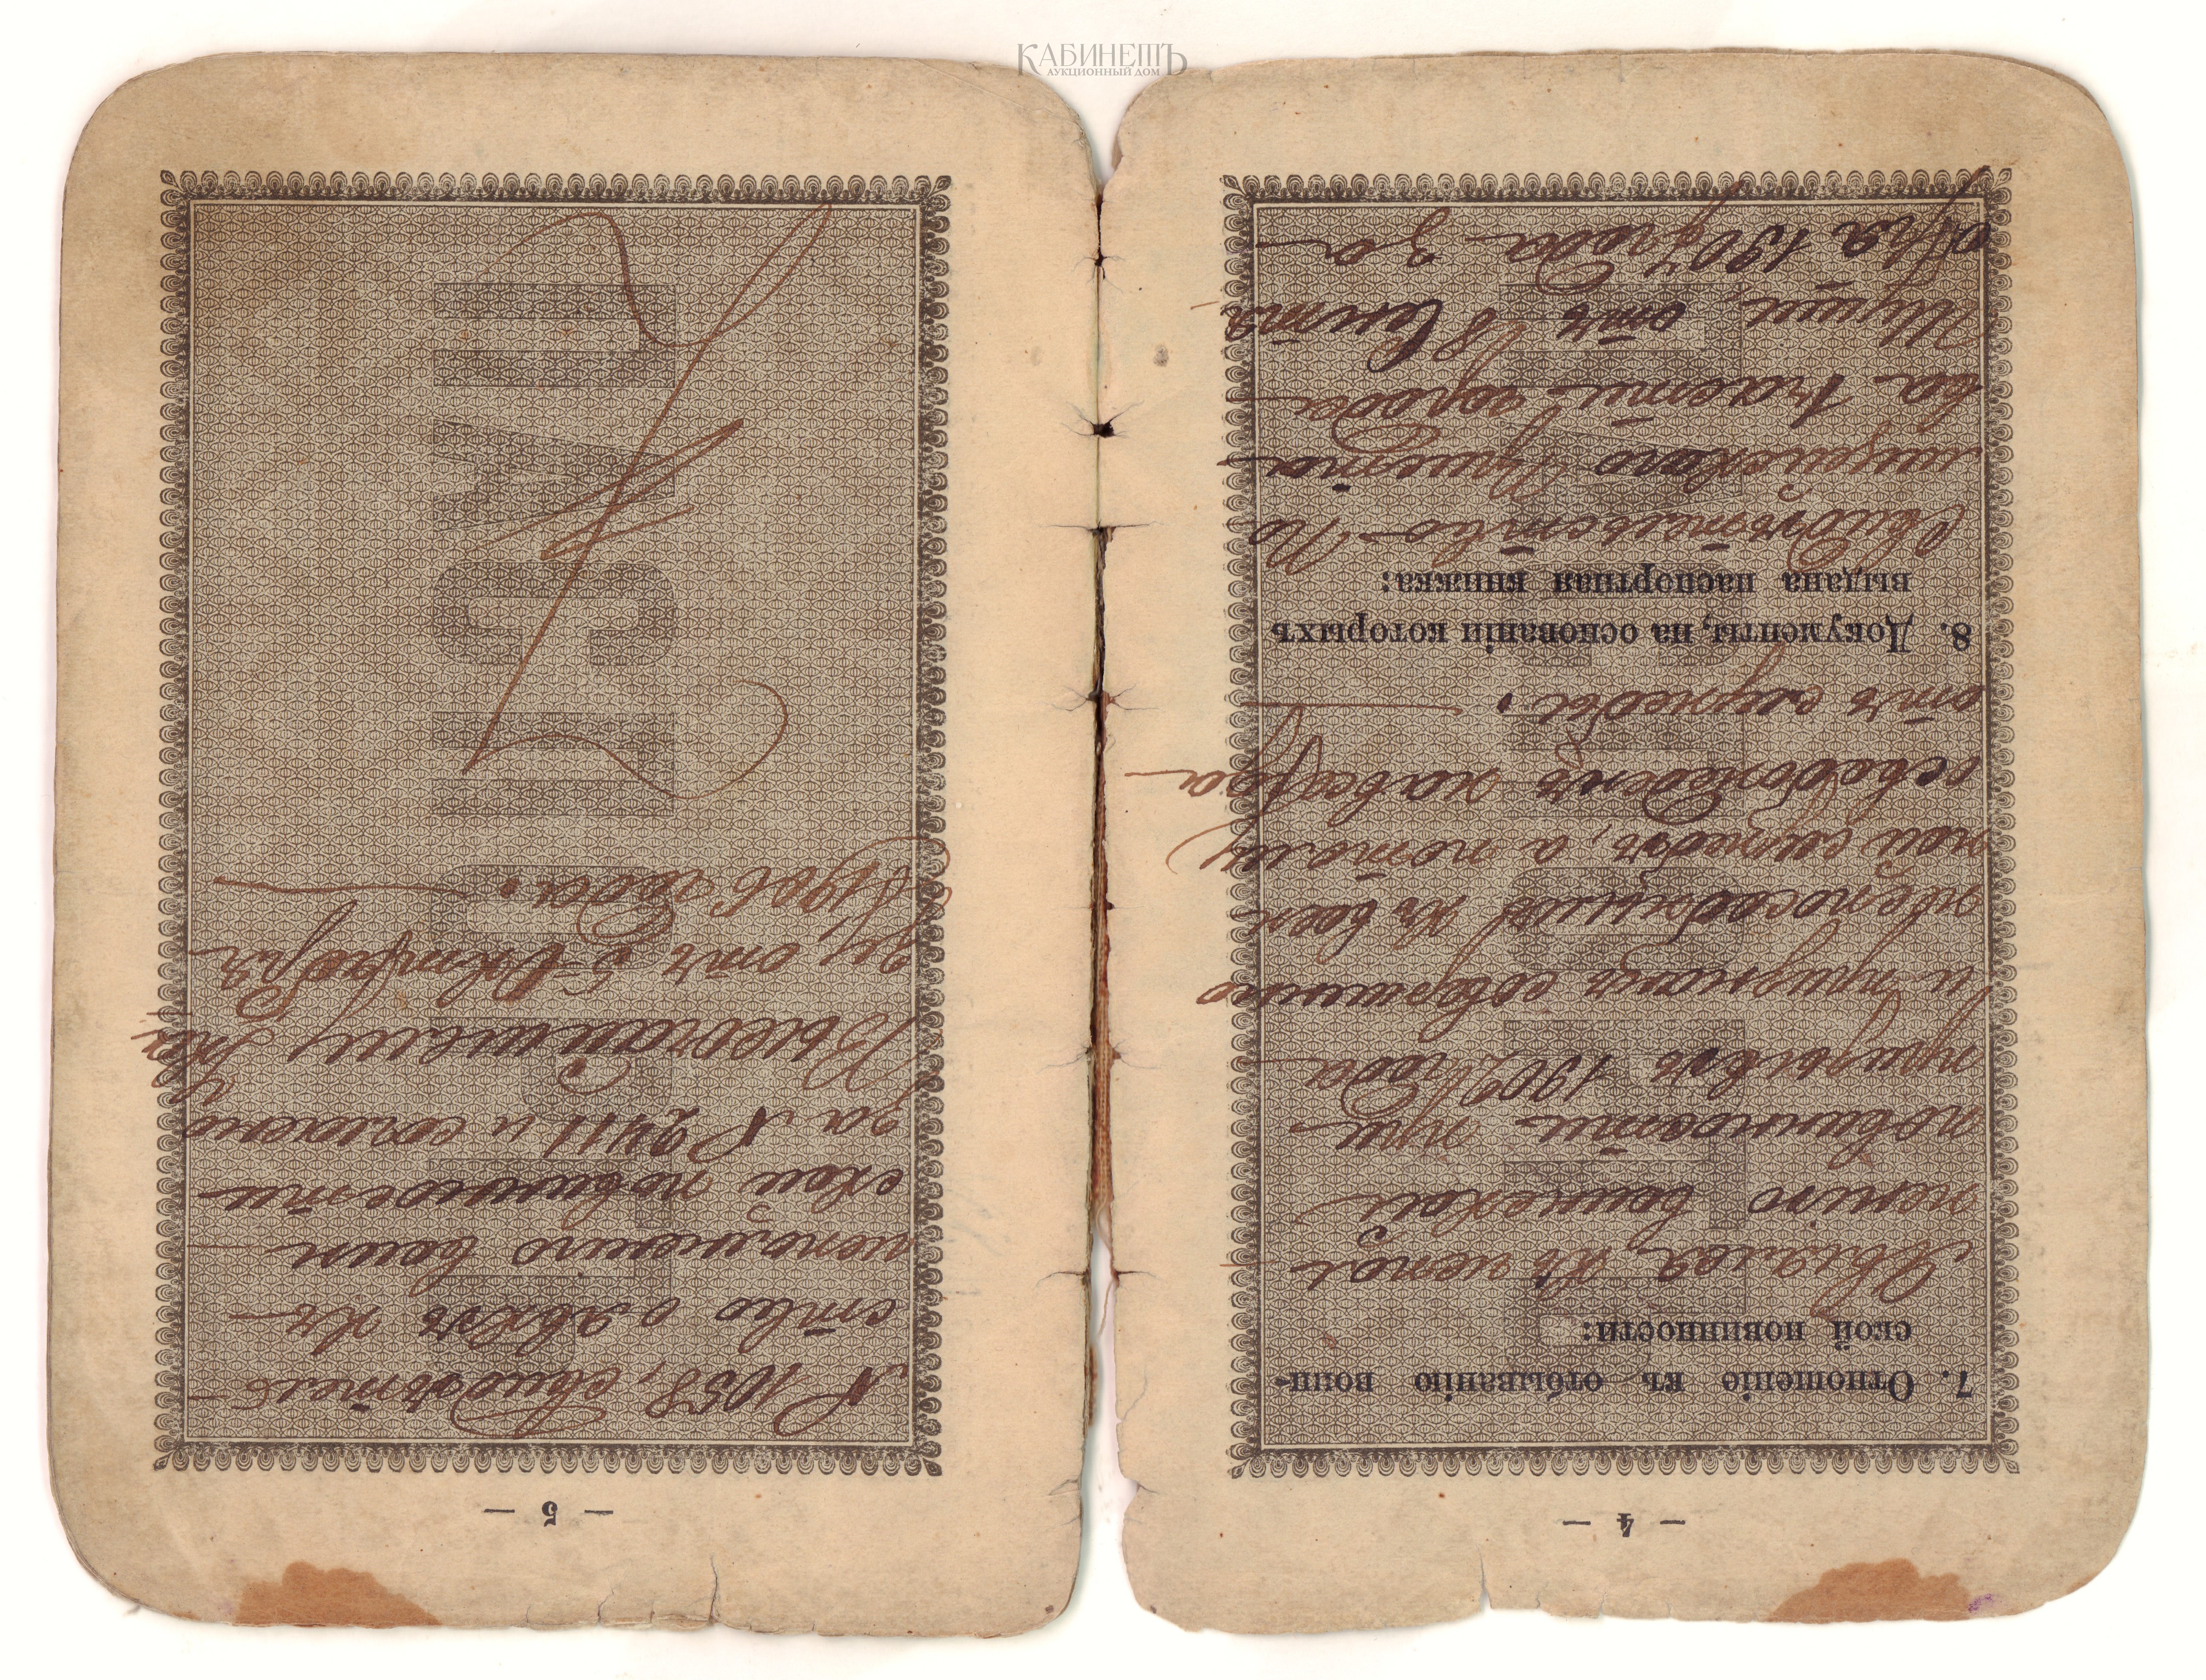 КАБИНЕТЪ
АУКЦИОННЫЙ ДОМ
— 4 —
7. Отношеніе къ отбыванію воин-
ской повинности:
Явился къ испол
ненію воинской
повинности при
призывѣ 1902 года
и признанъ совершенно
неспособнымъ къ воен
ной службѣ, а потому
освобожденъ навсегда
отъ службы.
8. Документы, на основаніи которыхъ
выдана паспортная книжка:
Свидѣтельство По
лицейскаго Пристава
ва части города
Шуши, отъ 18 Сентя
бря 1904 года за
— 5 —
№ 1058, Свидѣтель
ство о явкѣ къ
исполненію воин
ской повинности
за № 2411 и
отъ 5 Октября
года.